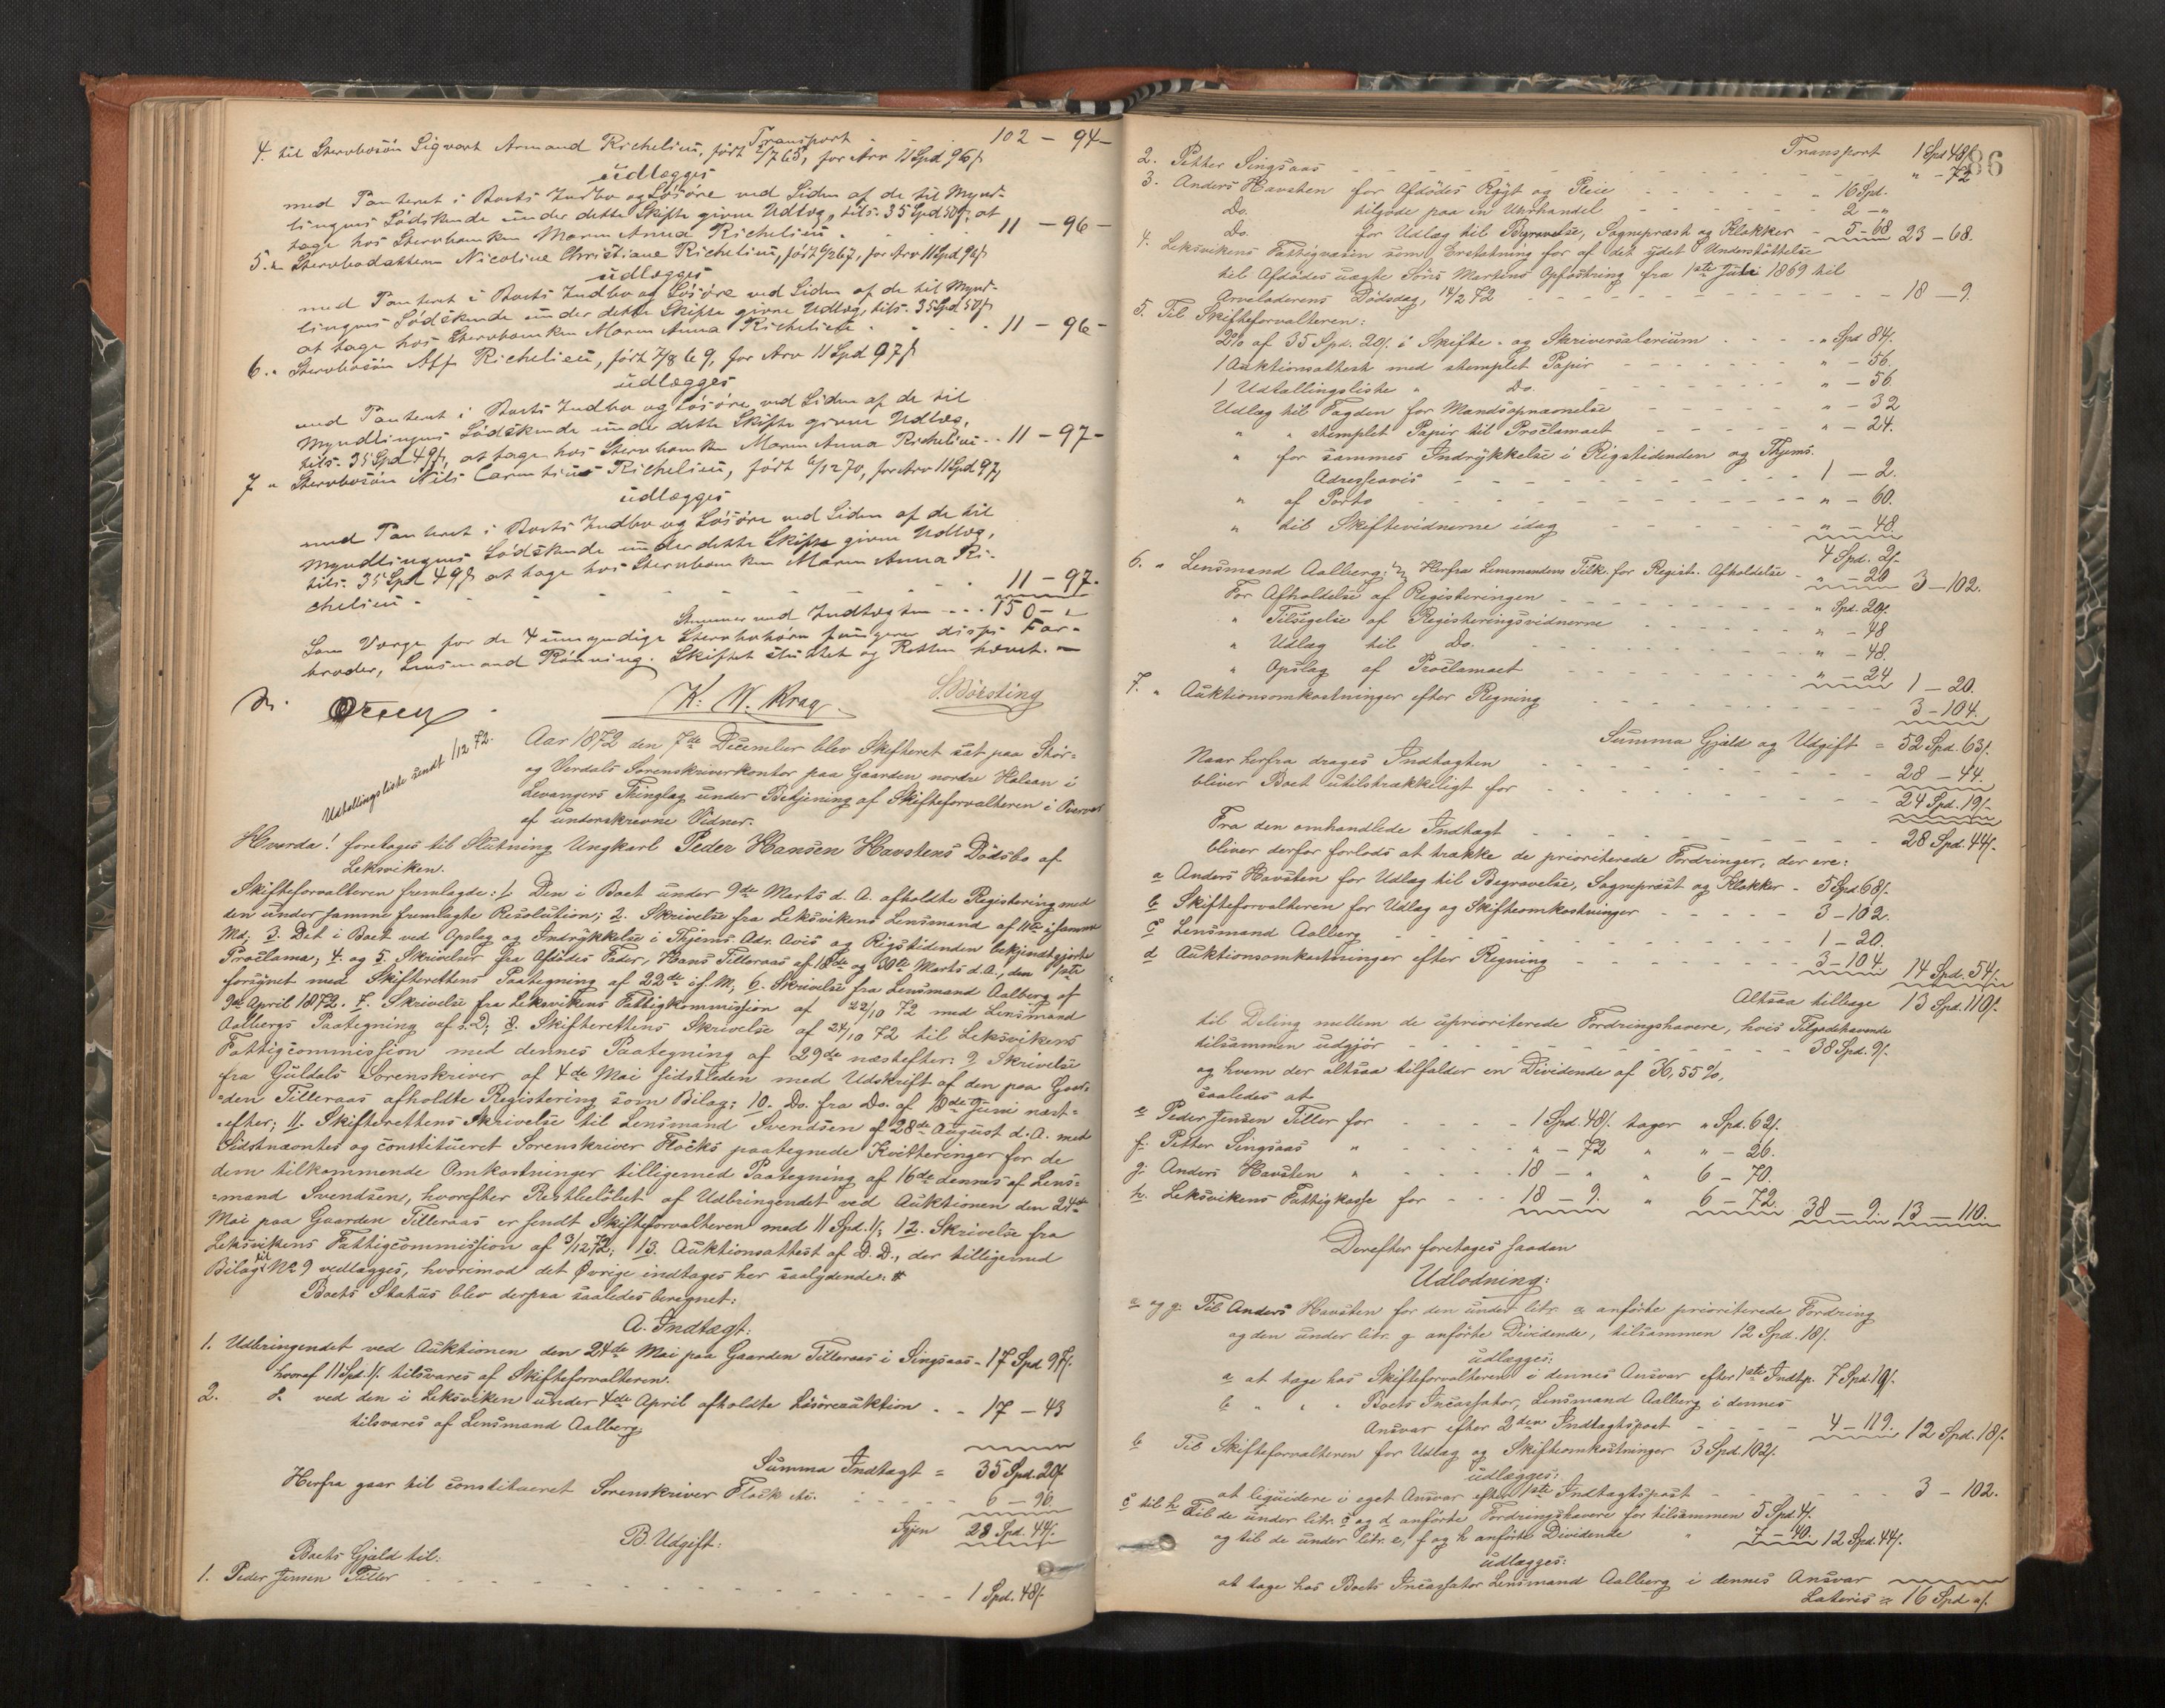 Transport 102 - 94 -
4. til Stervbosön Sigvart Armand Richelieu, født 2/7 65, for Arv 11 Spd 96 ß
udlægges
med Panteret i Boets Indbo og Lösöre ved Siden af de til Mynd-
lingens Södskende under dette Skifte givne Udlæg, tils. 35 Spd 50 ß, at
tage hos Stervbsenken Maren Anna Richelieu 11 - 96 -
5. " Stervbodatteren Nicoline Christiane Richelieu, født 6/2 67, for Arv 11 Spd 96 ß
udlægges
med Panteret i Boets Indbo og Lösöre ved Siden af de til Mynd-
lingens Södskende under dette Skifte givne Udlæg, tils. 35 Spd 50 ß
at tage hos Stervbsenken Maren Anna Richelieu 11 - 96 -
6. " Stervbosön Alf Richelieu, født 7/8 69, for Arv 11 Spd 97 ß
udlægges
med Panteret i Boets Indbo og Lösöre ved Siden af de til
Myndlingens Södskende under dette Skifte givne Udlæg,
tils. 35 Spd 49 ß, at tage hos Stervbsenken Maren Anna Richelieu 11 - 97 -
7 " Stervbosön Nils Richelieu, født 6/12 70, for Arv 11 Spd 97 ß
udlægges
med Panteret i Boets Indbo og Lösöre ved Siden af de til
Myndlingens Södskende under dette Skifte givne Udlæg,
tils. 35 Spd 49 ß at tage hos Stervbsenken Maren Anna Ri-
chelieu 11 - 97.
Summer med Indtægten 150 - "
Som Værge for de 4 umyndige Stervbobörn fungerer disses Far-
broder, Lensmand Rönning. Skiftet sluttet og Retten hævet. -
K. N. Krag. S. Börsting
Udtallingsliste sendt /12 72.
Aar 1872 den 7de December blev Skifteret sat paa Stör-
og Verdals Sorenskriverkontor paa Gaarden nordre Halsan i
Levangers Thinglag under Betjening af Skifteforvalteren i Overvær
af underskrevne Vidner.
Hvorda! foretages til Slutning Ungkarl Peder Hansen Havstens Dödsbo af
Leksviken.
Skifteforvalteren fremlagde: 1. Den i Boet under 9de Marts d. A. afholdte Registering med
den under samme fremlagte Resolution; 2. Skrivelse fra Leksvikens Lensmand af 11te i samme
Md; 3. Det i Boet ved Opslag og Indrykkelse i Thjems. Adr. Avis og Rigstidenden bekjendtgjorte
Proclama; 4. og 5. Skrivelser fra Afdödes Fader, Hans Tilleraas af 18de og 30te Marts d.A., den 1ste
forsynet med Skifterettens Paategning af 22de i f. M; 6. Skrivelse fra Lensmand Aalberg af
9de April 1872. 7. Skrivelse fra Leksvikens Fattigkommission af 22/10 72 med Lensmand
Aalbergs Paategning af s. D; 8. Skifterettens Skrivelse af 24/10 72 til Leksvikens
Fattigcommission med dennes Paategning af 29de næstefter; 9 Skrivelse
fra Guldals Sorenskriver af 4de Mai sidstleden med Udskrift af den paa Gaar-
den Tilleraas afholdte Registering som Bilag; 10. Do. fra Do. af 8de Juni næst-
efter; 11. Skifterettens Skrivelse til Lensmand Svendsen af 28de August d. A. med
Sidstnævntes og constitueret Sorenskriver Flocks paategnede Kvitteringer for de
dem tilkommende Omkostninger tilligemed Paategning af 16de dennes af Lens-
mand Svendsen, hvorefter Restbelöbet af Udbringendet ved Auktionen den 24de
Mai paa Gaarden Tilleraas er sendt Skifteforvalteren med 11 Spd. 1ß; 12. Skrivelse fra
Leksvikens Fattigcommission af 3/12 72; 13. Auktionsattest af D. D., der tilligemed
Bilag til No 9 vedlægges, hvorimod det Øvrige indtages her saalydende: #
Boets Status blev derpaa saaledes beregnet:
A. Indtægt:
1. Udbringendet ved Auktionen den 24de Mai paa Gaarden Tilleraas i Singsaas - 17 Spd 97 ß.
hvoraf 11 Spd. 1 ß. tilsvares af Skifteforvalteren.
2. do ved den i Leksviken under 4de April afholdte Lösöreauktion 17 - 43
tilsvares af Lensmand Aalberg.
Summa Indtægt = 35 Spd. 20 ß
Herfra gaar til constitueret Sorenskriver Flock etc. 6 - 96.
Igjen 28 Spd. 44 ß.
B. Udgift:
Boets Gjæld til:
1. Peder Jensen Tiller 1 Spd. 48 ß.
86
Transport 1 Spd 48 ß.
2. Petter Singsaas " - 72
3. Anders Havsten for Afdödes Rögt og Pleie 16 Spd.
Do. tilgode paa en Uhrhandel 2 - "
Do. for Udlæg til Begravelse, Sognepræst og Klokker - 5 - 68 23 - 68.
4. Leksvikens Fattigvæsen som Erstatning for af det ydet Understöttelse
til Afdödes uægte Söns Martins Opfostring fra 1ste Juli 1869 til
Arveladerens Dödsdag, 14/2 72 18 - 9.
5. Til Skifteforvalteren:
2% af 35 Spd. 20 ß. i Skifte- og Skriversalarium " Spd 84 ß.
1 Auktionsattest med stemplet Papir " - 56.
1 Udtallingsliste " Do. " - 56.
Udlæg til Fogden for Mandsopnævnelse " - 32
" " stemplet Papir til Proclamaet " - 24.
" for sammes Indrykkelse i Rigstidenden og Thjems.
Adresseavis 1 - 2.
" af Porto " - 60.
" til Skiftevidnerne idag " - 48.
4 Spd. 2 ß.
Herfra Lensmandens Tilk. for Regist. Afholdelse " - 20 3 - 102.
6. " Lensmand Aalberg:
For Afholdelse af Registeringen " Spd. 20 ß.
" Tilsigelse af Registeringsvidnerne " - 48
" Udlæg til Do. " - 48.
" Opslag af Proclamaet " - 24 1 - 20.
7. " Auktionsomkostninger efter Regning 3 - 104.
Summa Gjæld og Udgift = 52 Spd. 63 ß.
Naar herfra drages Indtægten 28 - 44.
bliver Boet utilstrækkeligt for 24 Spd. 19 ß.
Fra den omhandlede Indtægt 28 Spd. 44 ß.
bliver derfor forlods at trække de prioriterede Fordringer, der ere:
a Anders Havsten for Udlæg til Begravelse, Sognepræst og Klokker - 5 Spd 68 ß.
b Skifteforvalteren for Udlæg og Skifteomkostninger 3 - 102.
c Lensmand Aalberg 1 - 20.
d Auktionsomkostninger efter Regning 3 - 104 14 Spd. 54 ß.
Altsaa tilbage 13 Spd. 110 ß.
til Deling mellem de uprioriterede Fordringshavere, hvis Tilgodehavende
tilsammen udgjör 38 Spd. 9 ß.
og hvem der altsaa tilfalder en Dividende af 36,55 %,
saaledes at
e Peder Jensen Tiller for 1 Spd. 48 ß. tager " Spd. 62 ß.
f. Petter Singsaas " " - 72 " " - 26.
g. Anders Havsten " 18 - " " 6 - 70.
h. Leksvikens Fattigkasse for 18 - 9. " 6 - 72. 38 - 9. 13 - 110.
Derefter foretages saadan
Udlodning:
a og g. Til Anders Havsten for den under litr. a anförte prioriterede Fordring
og den under litr. g anförte Dividende, tilsammen 12 Spd. 18 ß.
udlægges:
a at tage hos Skifteforvalteren i dennes Ansvar efter 1ste Indtp. 7 Spd. 19 ß.
b " " " Boets Incassator, Lensmand Aalberg i dennes
Ansvar efter 2den Indtægtspost 4 - 119. 12 Spd. 18 ß.
b Til Skifteforvalteren for Udlæg og Skifteomkostninger 3 Spd. 102 ß.
udlægges:
at liquidere i eget Ansvar efter 1ste Indtægtspost 3 - 102.
c til h Til de under litr. c og d anförte Fordringshavere for tilsammen 5 Spd. 4 ß.
og til de under litr. e, f og h anförte Dividende " 7 - 40. 12 Spd. 44 ß.
udlægges:
at tage hos Boets Incassator Lensmand Aalberg i dennes Ansvar
Lateris = 16 Spd " ß.